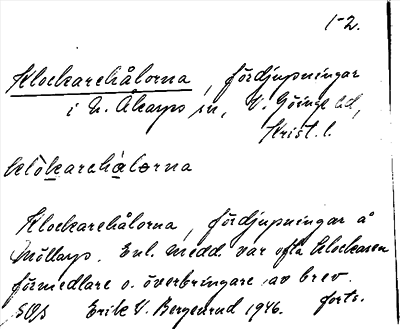 1-2.
Klockarehålorna, fördjupningar
i N. Åkarps sn, V. Göinge hd,
Krist. l.
klòkarehàlorna
Klockarehålorna, fördjupningar å
Möllarp. Enl. medd. var ofta klockaren
förmedlare o. överbringare av brev.
Erik V. Bergenrud 1946. forts.